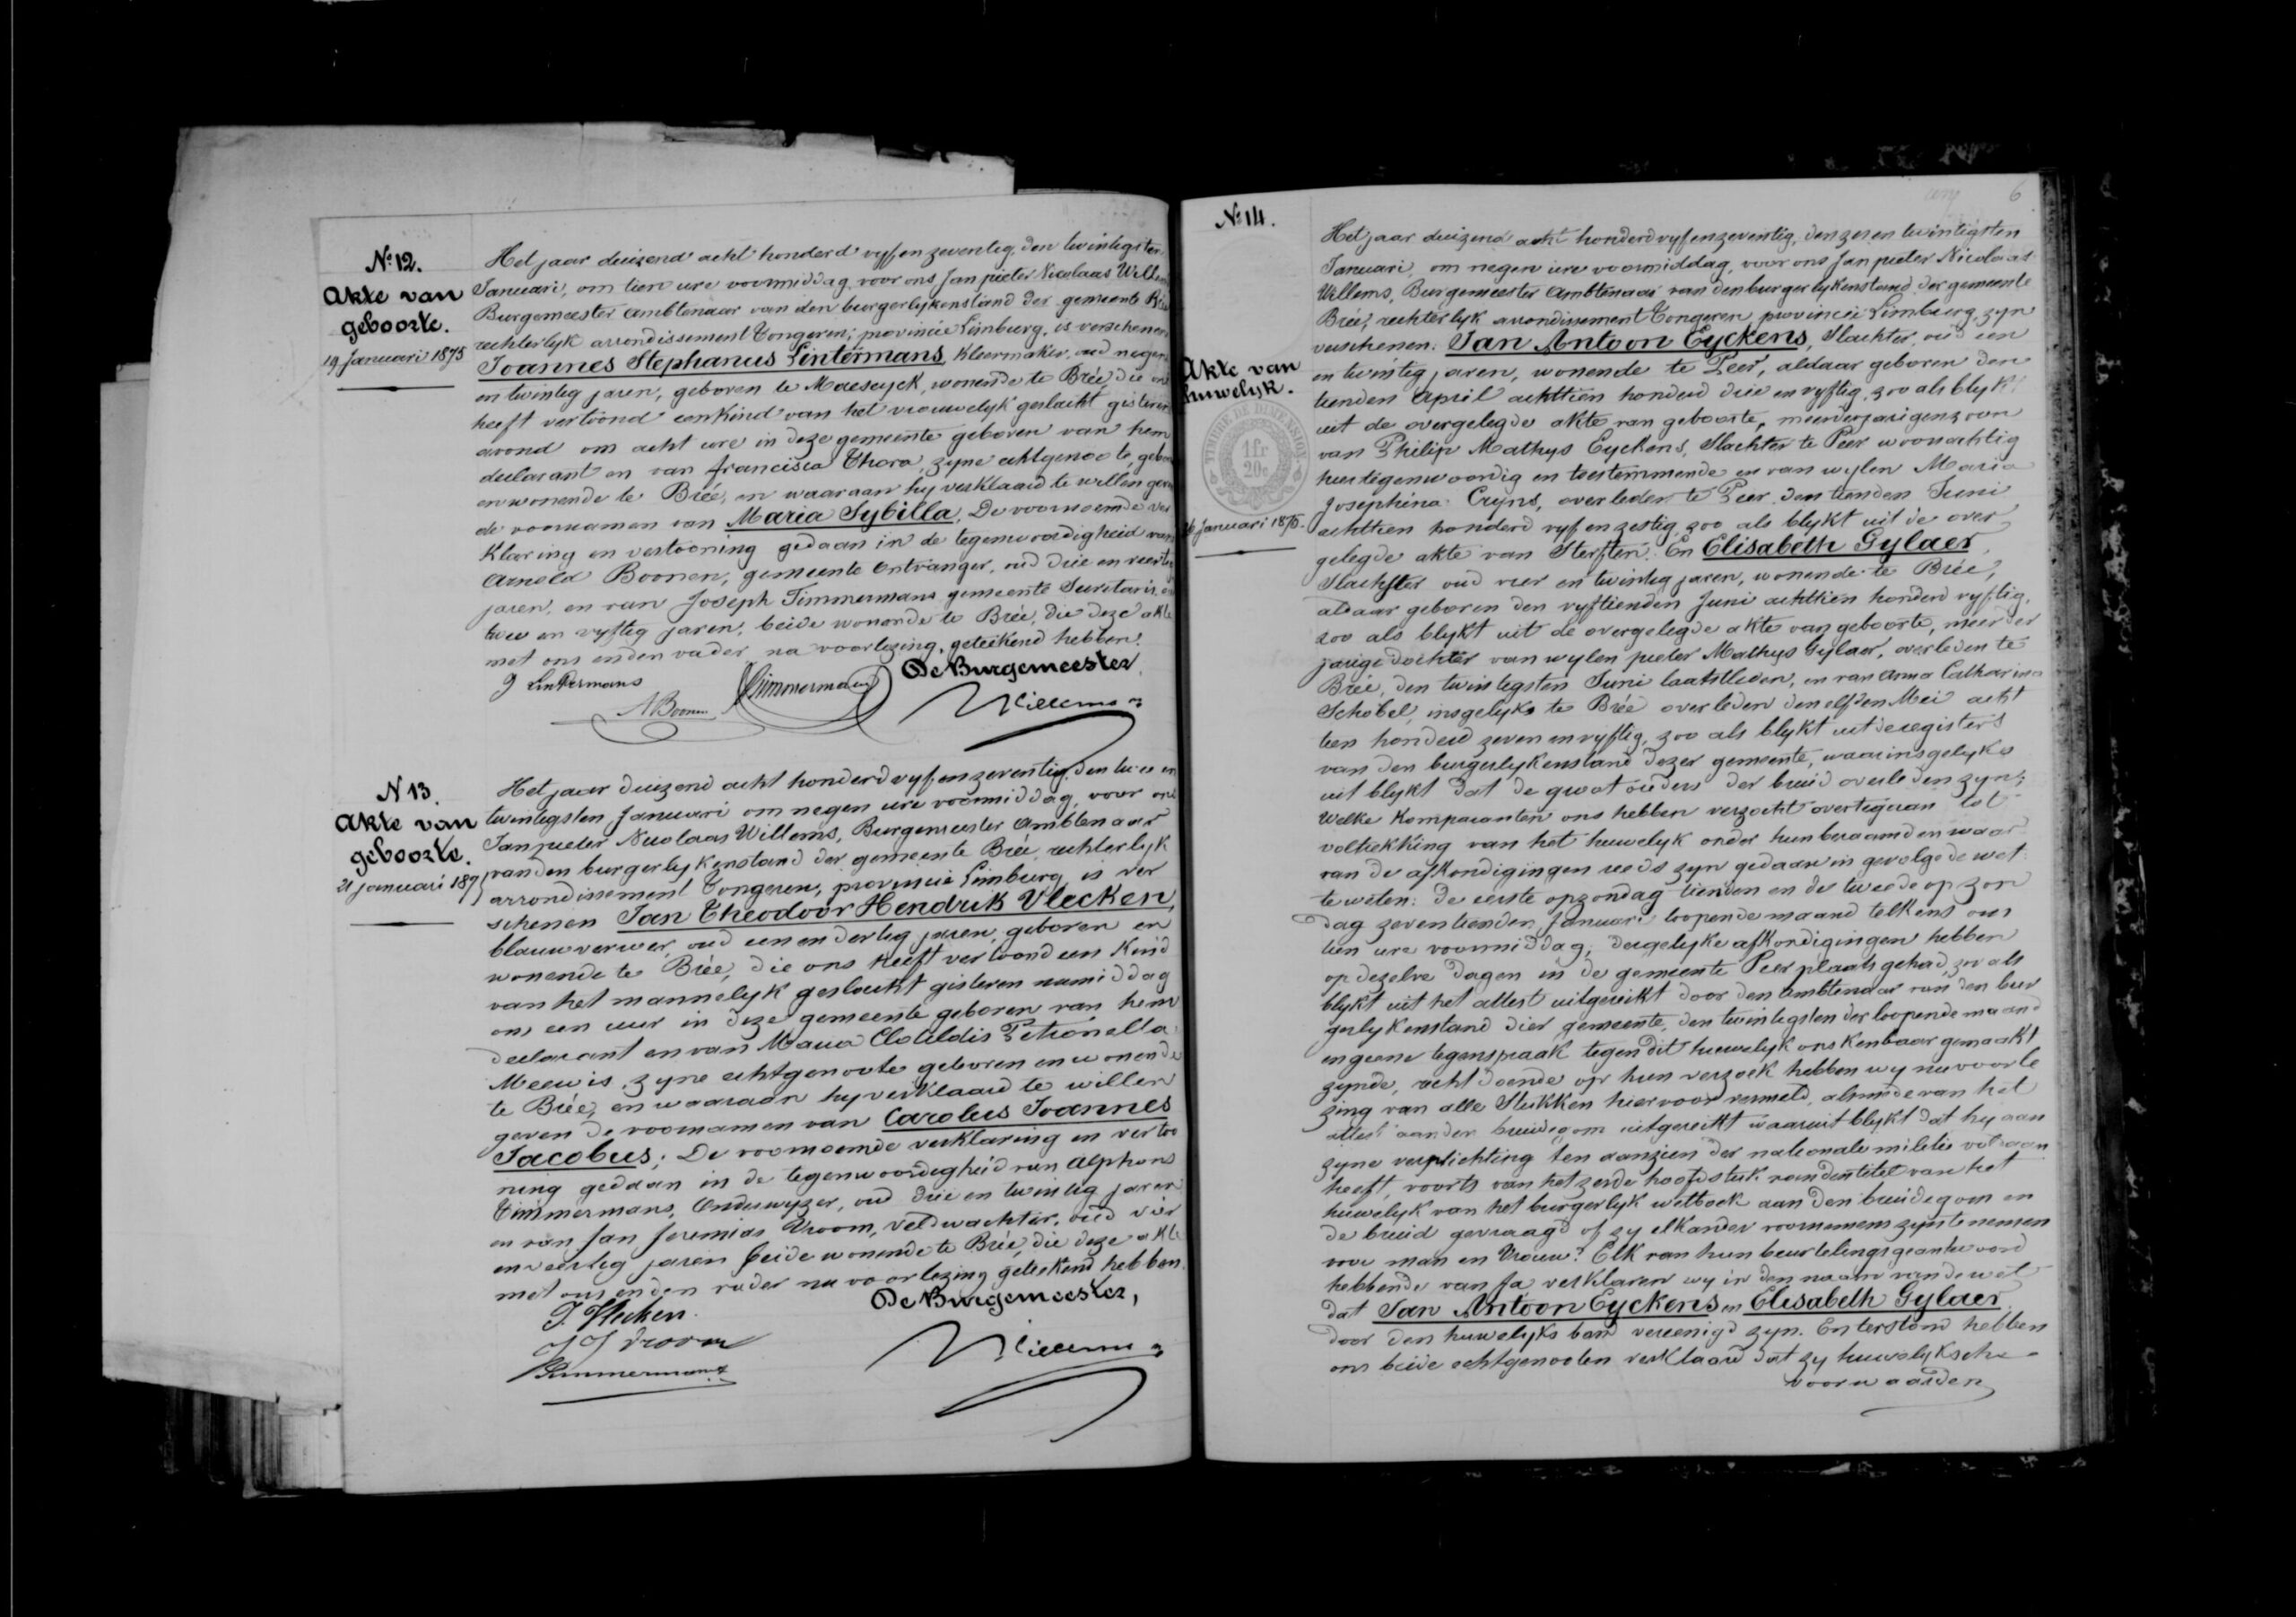 N° 12.
Akte van
geboorte.
19 Januari 1875
Het jaar duizend acht honderd vyf en zeventig, den twintigsten
Januari, om tien ure voormiddag, voor ons Jan pieter Nicolaas Willems
Burgemeester ambtenaar van den burgerlykenstand der gemeente Brée
rechterlyk arrondissement Tongeren, provincie Limburg, is verschenen
Joannes Stephanus Lintermans, Kleermaker, oud negen
en twintig jaren, geboren te Maeseyck, wonende te Brée, die ons
heeft vertoond een Kind van het vrouwelyk geslacht gisteren
avond om acht ure in deze gemeente geboren van hem
declarant en van francisca Thora, zyne echtgenoote, geboren
en wonende te Brée, en waaraan hy verklaard te willen geven
de voornamen van Maria Sybilla. De voornoemde ver
klaring en vertooning gedaan in de tegenwoordigheid van
Arnold Boonen, gemeente Ontvanger, oud drie en veertig
jaren, en van Joseph Timmermans gemeente Secretaris, oud
twee en vyftig jaren, beide wonende te Brée, die deze akte
met ons en den vader na voorlezing, geteekend hebben.
De Burgemeester,
J Lintermans
ABoonen
JTimmermans
Willems
N 13.
Akte van
geboorte.
21 januari 1875
Het jaar duizend acht honderd vyf en zeventig, den twee en
twintigsten Januari om negen ure voormiddag, voor ons
Jan pieter Nicolaas Willems, Burgemeester Ambtenaar
van den burgerlykenstand der gemeente Brée, rechterlyk
arrondissement Tongeren, provincie Limburg, is ver
schenen Jan Theodoor Hendrik Vlecken,
blauwverwer, oud een en dertig jaren, geboren en
wonende te Brée, die ons heeft vertoond een Kind
van het mannelyk geslacht gisteren namiddag
om een uur in deze gemeente geboren van hem
declarant en van Maria Clotildis Petronella
Meewis, zyne echtgenoote geboren en wonende
te Brée, en waaraan hy verklaard te willen
geven de voornamen van Carolus Joannes
Jacobus; De voornoemde verklaring en vertoo
ning gedaan in de tegenwoordigheid van Alphons
Timmermans, Onderwyzer, oud drie en twintig jaren
en van Jan Jeremias Vroom, Veldwachter, oud vier
en veertig jaren beide wonende te Brée, die deze akte
met ons en den vader na voorlezing geteekend hebben.
De Burgemeester,
T. Vlecken.
J J Vroom
Timmermans
Willems
6
N° 14.
Akte van
huwelyk.
TIMBRE DE DIMENSION
1fr
20c
26 Januari 1875.
Het jaar duizend acht honderd vyf en zeventig, den zes en twintigsten
Januari, om negen ure voormiddag, voor ons Jan pieter Nicolaas
Willems, Burgemeester Ambtenaar van den burgerlykenstand der gemeente
Brée, rechterlyk arrondissement Tongeren, provincie Limburg, zyn
verschenen: Jan Antoon Eyckens, Slachter, oud een
en twintig jaren, wonende te Peer, aldaar geboren den
tienden April achttien honderd drie en vyftig, zoo als blykt
uit de overgelegde akte van geboorte, meerderjarigen zoon
van Philip Mathys Eyckens, Slachter te Peer woonachtig
hier tegenwoordig en toestemmende en van wylen Maria
Josephina Cryns, overleden te Peer den tienden Juni
achttien honderd vyf en zestig, zoo als blykt uit de over
gelegde akte van Sterften. En Elisabeth Gylaer,
Slachster oud vier en twintig jaren, wonende te Brée,
aldaar geboren den vyftienden Juni achttien honderd vyftig,
zoo als blykt uit de overgelegde akte van geboorte, meerder
jarige dochter van wylen pieter Mathys Gylaer, overleden te
Brée, den twintigsten Juni laatstleden, en van Anna Catharina
Schobel, insgelyks te Brée overleden den elfden Mei acht
tien honderd zeven en vyftig, zoo als blykt uit de registers
van den burgerlykenstand dezer gemeente, waar insgelyks
uit blykt dat de groot ouders der bruid overleden zyn;
Welke Komparanten ons hebben verzocht overtegaan tot
voltrekking van het huwelyk onder hun beraamd en waar
van de afkondigingen reeds zyn gedaan in gevolge de wet
te weten: De eerste op zondag tienden en de tweede op zon
dag zeventienden Januari loopende maand telkens om
tien ure voormiddag; dergelyke afkondigingen hebben
op dezelve dagen in de gemeente Peer plaats gehad, zoo als
blykt uit het attest uitgereikt door den Ambtenaar van den bur
gerlykenstand dier gemeente, den twintigsten der loopende maand
en geene tegenspraak tegen dit huwelyk ons kenbaar gemaakt
zynde, recht doende op hun verzoek hebben wy na voorle
zing van alle Stukken hiervoor vermeld, alsmede van het
attest aan den bruidegom uitgereikt waaruit blykt dat hy aan
zyne verplichting ten aanzien der nationale militie voldaan
heeft, voorts van het zesde hoofdstuk van den titel van het
huwelyk van het burgerlyk wetboek aan den bruidegom en
de bruid gevraagd of zy elkander voornemens zyn te nemen
voor man en Vrouw? Elk van hun beurtelings geantwoord
hebbende van Ja verklaren wy in den naam van de wet
dat Jan Antoon Eyckens en Elisabeth Gylaer
door den huwelyks band vereenigd zyn. En terstond hebben
ons beide echtgenooten verklaard dat zy huwelyksche
voorwaarden